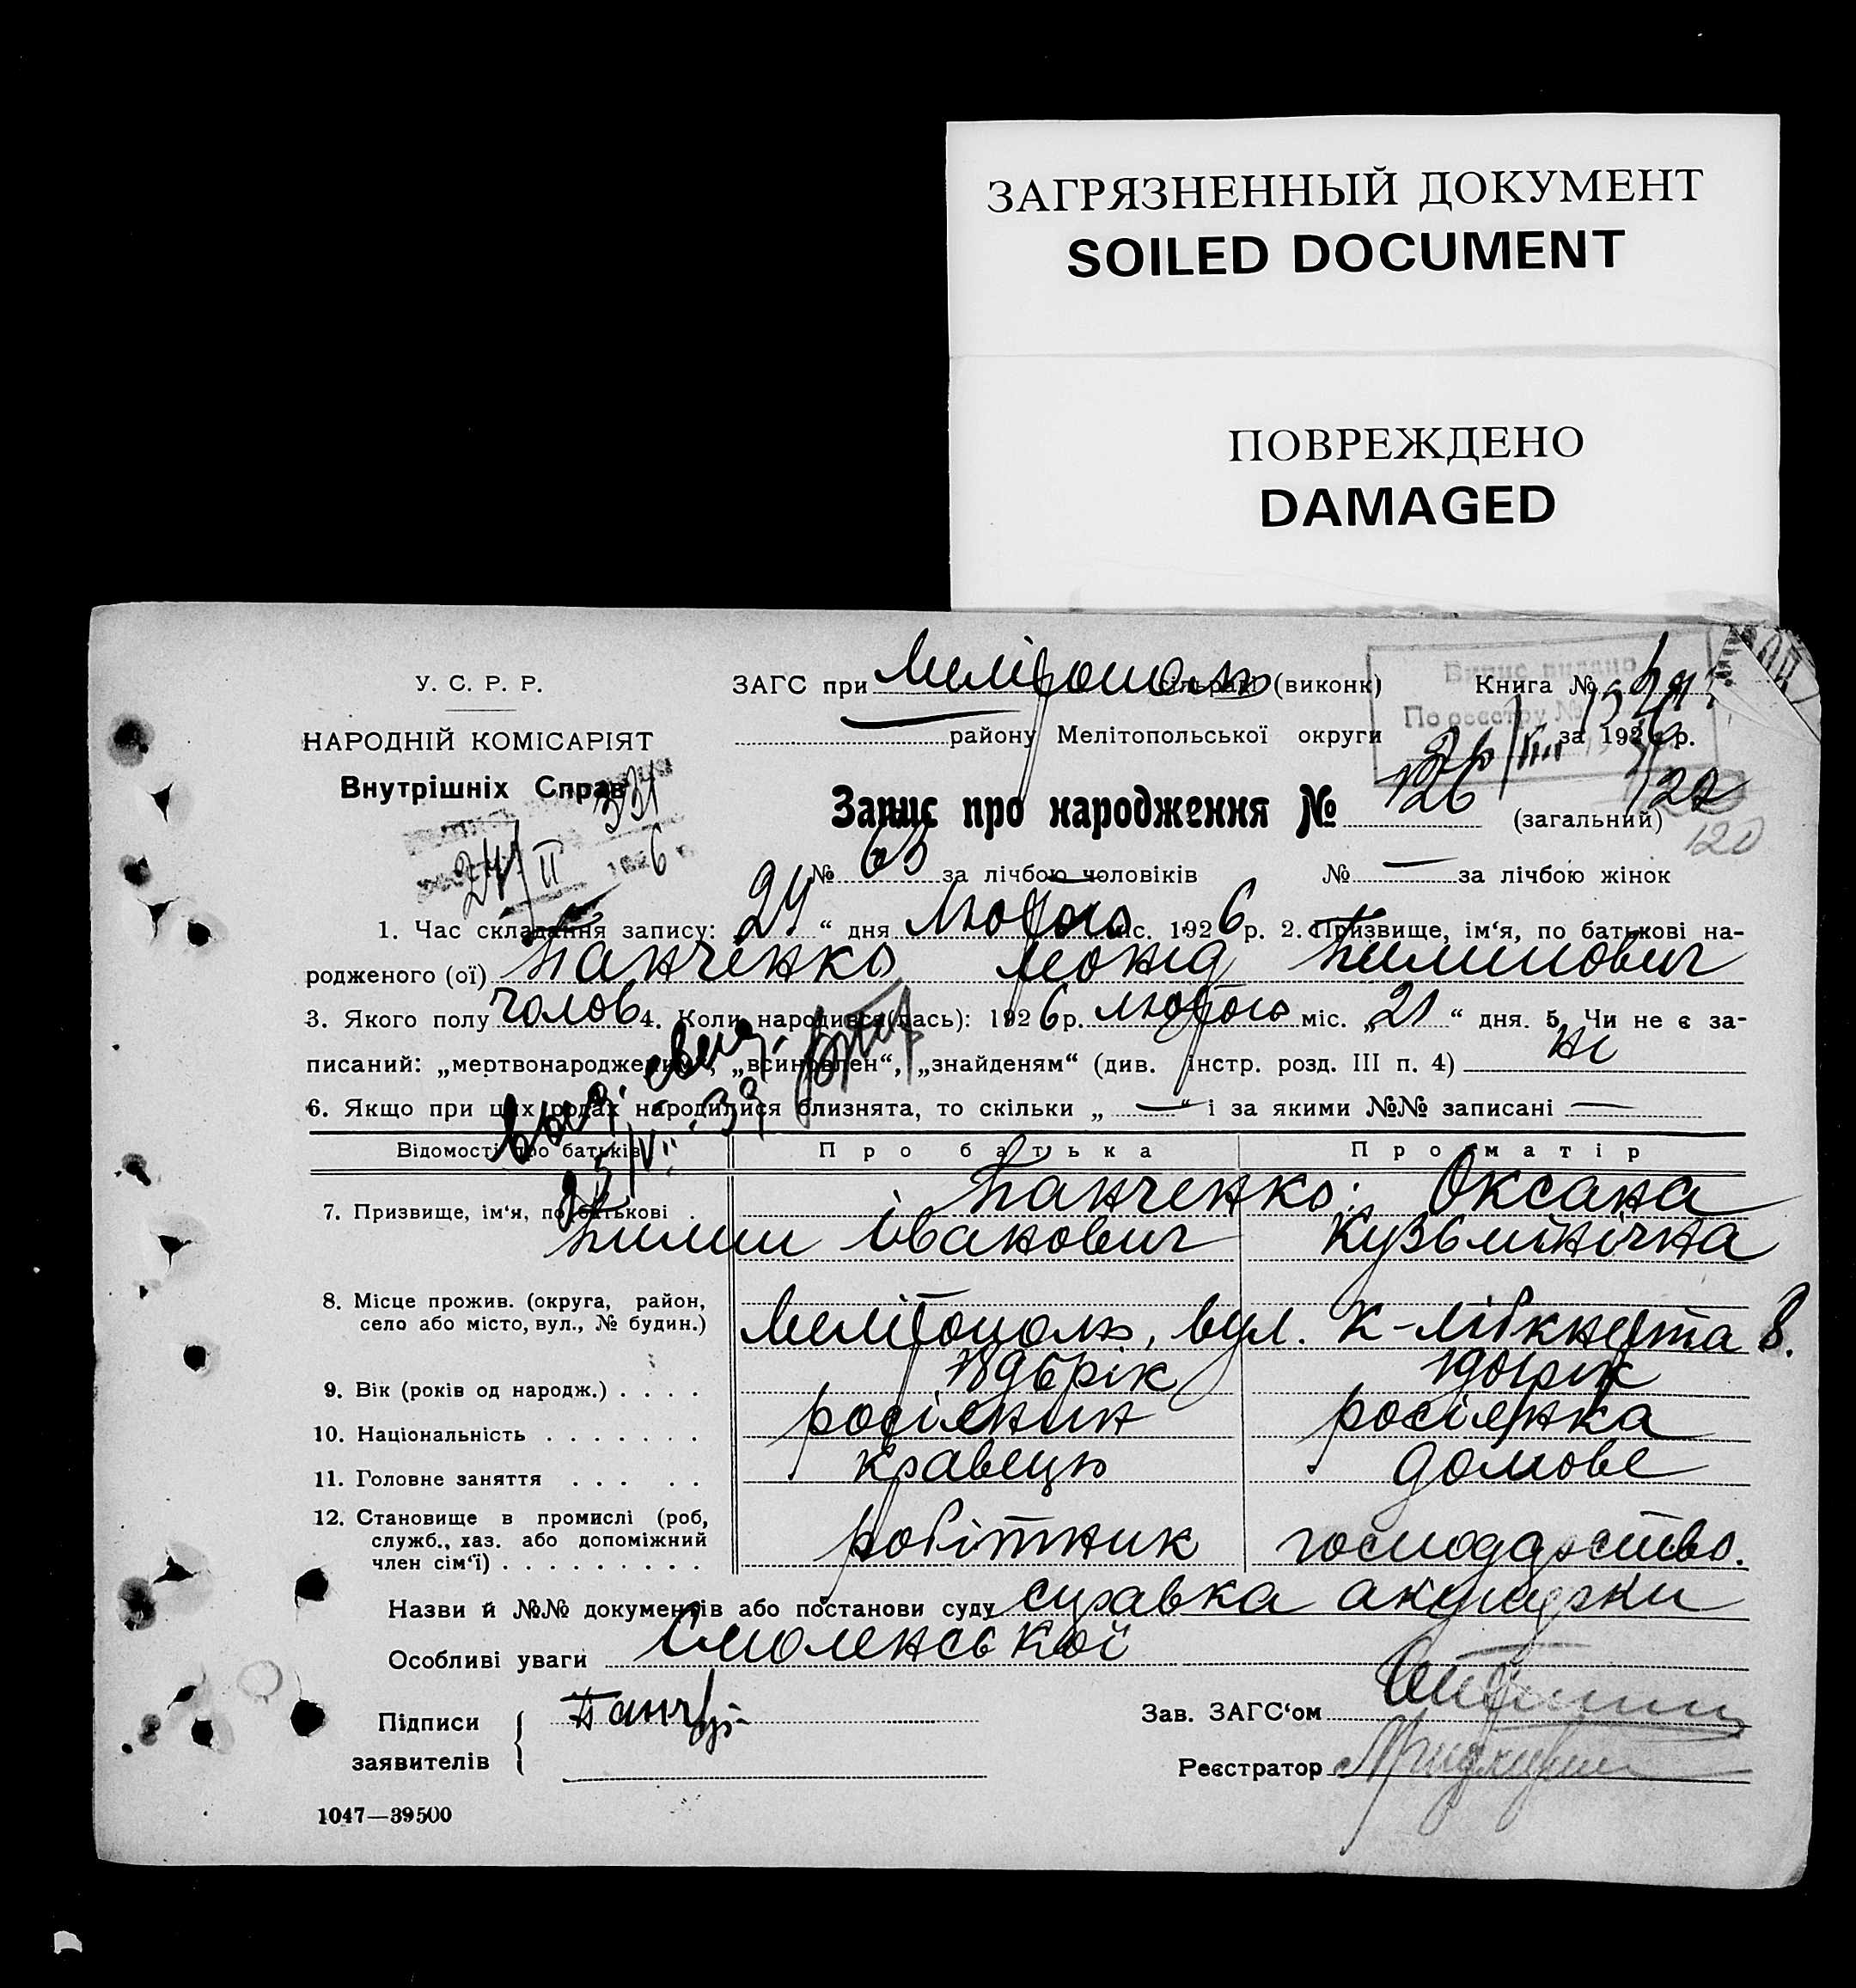 ЗАГРЯЗНЕННЫЙ ДОКУМЕНТ
SOILED DOCUMENT
ПОВРЕЖДЕНО
DAMAGED
У. С. Р. Р.
НАРОДНІЙ КОМІСАРІЯТ
Внутрішніх Справ
ЗАГС при Мелітополь сільраді (виконк) Книга №
району Мелітопольської округи за 1926 р.
Запис про народження № 126 (загальний)
120
№ 63 за лічбою чоловіків № — за лічбою жінок
1. Час складання запису: 24 “ дня Лютого міс. 1926 р. 2. Призвище, ім‘я, по батькові на-
родженого (ої) Панченко Леонід Пилипович
3. Якого полу чолов 4. Коли народився(лась): 1926 р. лютого міс. „21“ дня. 5. Чи не є за-
писаний: „мертвонародженим“, „всиновлен“, „знайденям“ (див. інстр. розд. III п. 4) Ні
6. Якщо при цих родах народилися близнята, то скільки „ — “ і за якими №№ записані —
Відомості про батьків Про батька Про матір
7. Призвище, ім‘я, по батькові . Панченко: Оксана
Пилип Іванович Кузьмінічна
8. Місце прожив. (округа, район,
село або місто, вул., № будин.)
Мелітополь, вул. К-Лібкнехта 8.
9. Вік (років од народж.) . . . .
10. Національність . . . . . . . росіянин росіянка
11. Головне заняття . . . . . кравець домове
12. Становище в промислі (роб,
служб., хаз. або допоміжний
член сім‘ї) . . . . . . . . . робітник господарство.
Назви й №№ документів або постанови суду справка акушерки
Особливі уваги Смоленської
Підписи
заявителів
Зав. ЗАГС‘ом
Реєстратор
1047—39500